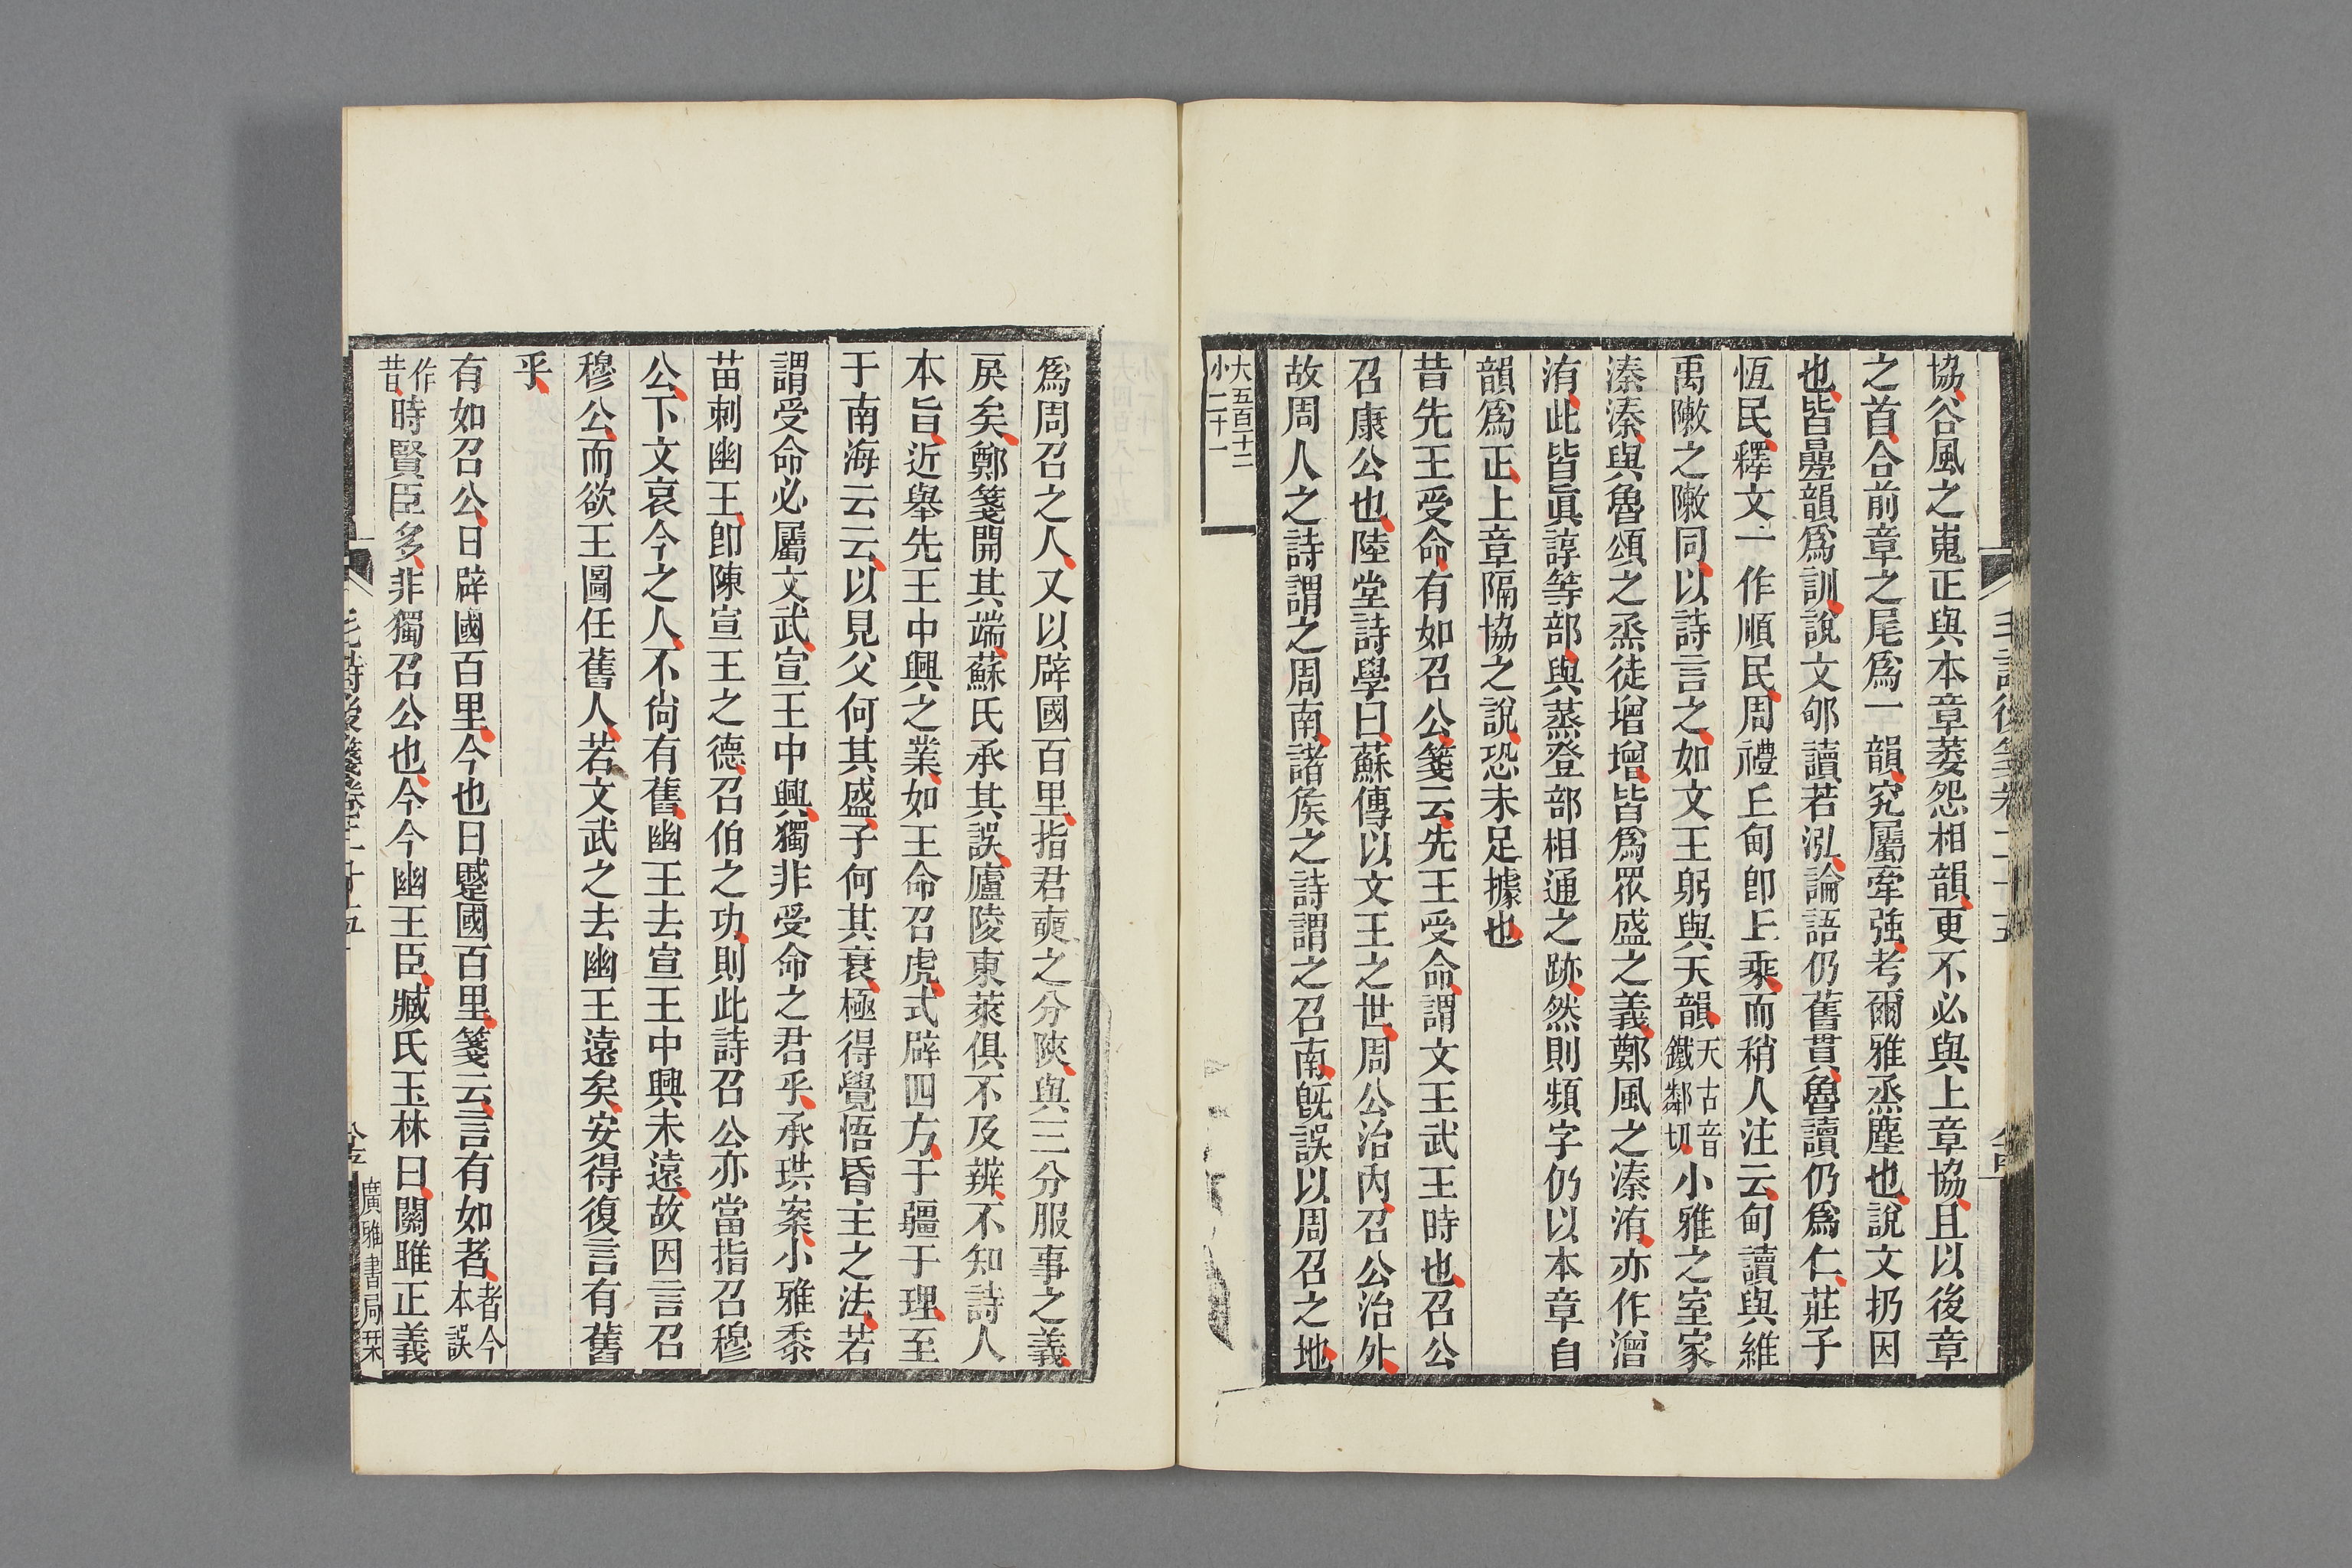 協谷風之嵬正與本章萎怨相韻更不必與上章協且以後章
之首合前章之尾爲一韻究屬牽強考爾雅烝塵也說文扔因
也皆疊韻爲訓說文邤讀若泓論語仍舊貫魯讀仍爲仁莊子
恆民釋文一作順民周禮丘甸卽上乘而稍人注云甸讀與維
禹敶之敶同以詩言之如文王躬與天韻天古音鐵鄰切小雅之室家
溱溱與魯頌之烝徒增增皆爲眾盛之義鄭風之溱洧亦作潧
洧此皆眞諄等部與蒸登部相通之跡然則頻字仍以本章自
韻爲正上章隔協之說恐未足據也
昔先王受命有如召公箋云先王受命謂文王武王時也召公
召康公也陸堂詩學曰蘇傳以文王之世周公治內召公治外
故周人之詩謂之周南諸矦之詩謂之召南旣誤以周召之地
大五百十二
小二十一
爲周召之人又以辟國百里指君奭之分陝與三分服事之義
戾矣鄭箋開其端蘇氏承其誤廬陵東萊俱不及辨不知詩人
本旨近舉先王中興之業如王命召虎式辟四方于疆于理至
于南海云云以見父何其盛子何其衰極得覺悟昏主之法若
謂受命必屬文武宣王中興獨非受命之君乎承珙案小雅黍
苗刺幽王卽陳宣王之德召伯之功則此詩召公亦當指召穆
公下文哀今之人不尙有舊幽王去宣王中興未遠故因言召
穆公而欲王圖任舊人若文武之去幽王遠矣安得復言有舊
乎
有如召公日辟國百里今也日蹙國百里箋云言有如者者今本誤
作昔時賢臣多非獨召公也今今幽王臣臧氏玉林曰關雎正義
毛詩後箋卷二十五
廣雅書局栞